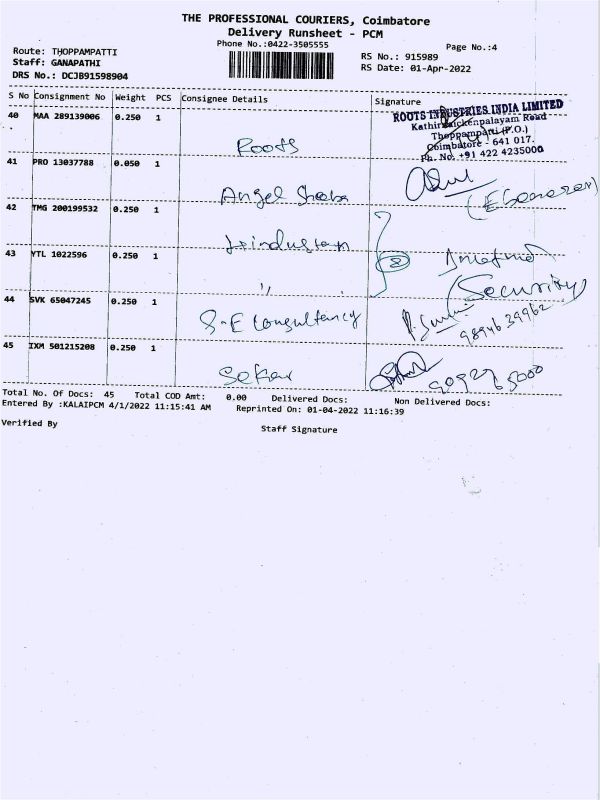 THE PROFESSIONAL COURIERS, Coimbatore
Delivery Runsheet - PCM
Phone No.:0422-3505555
Page No.:4
Route: THOPPAMPATTI
Staff: GANAPATHI
DRS No.: DCJB91598904
RS No.: 915989
RS Date: 01-Apr-2022
S No Consignment No Weight PCS Consignee Details Signature
40 MAA 289139006 0.250 1 Roots
ROOTS INDUSTRIES INDIA LIMITED
Kathirnaickenpalayam Road
Thoppampatti (P.O.)
Coimbatore - 641 017.
Ph. No. +91 422 4235000
41 PRO 13037788 0.050 1 Angel
(Ebenezer)
42 TMG 200199532 0.250 1 Hindustan
43 YTL 1022596 0.250 1 ,, ②
(Security)
44 SVK 65047245 0.250 1 S-E Consultancy
9894639962
45 IXM 501215208 0.250 1 Sekar
Total No. Of Docs: 45 Total COD Amt: 0.00 Delivered Docs: Non Delivered Docs:
Entered By :KALAIPCM 4/1/2022 11:15:41 AM Reprinted On: 01-04-2022 11:16:39
Verified By
Staff Signature